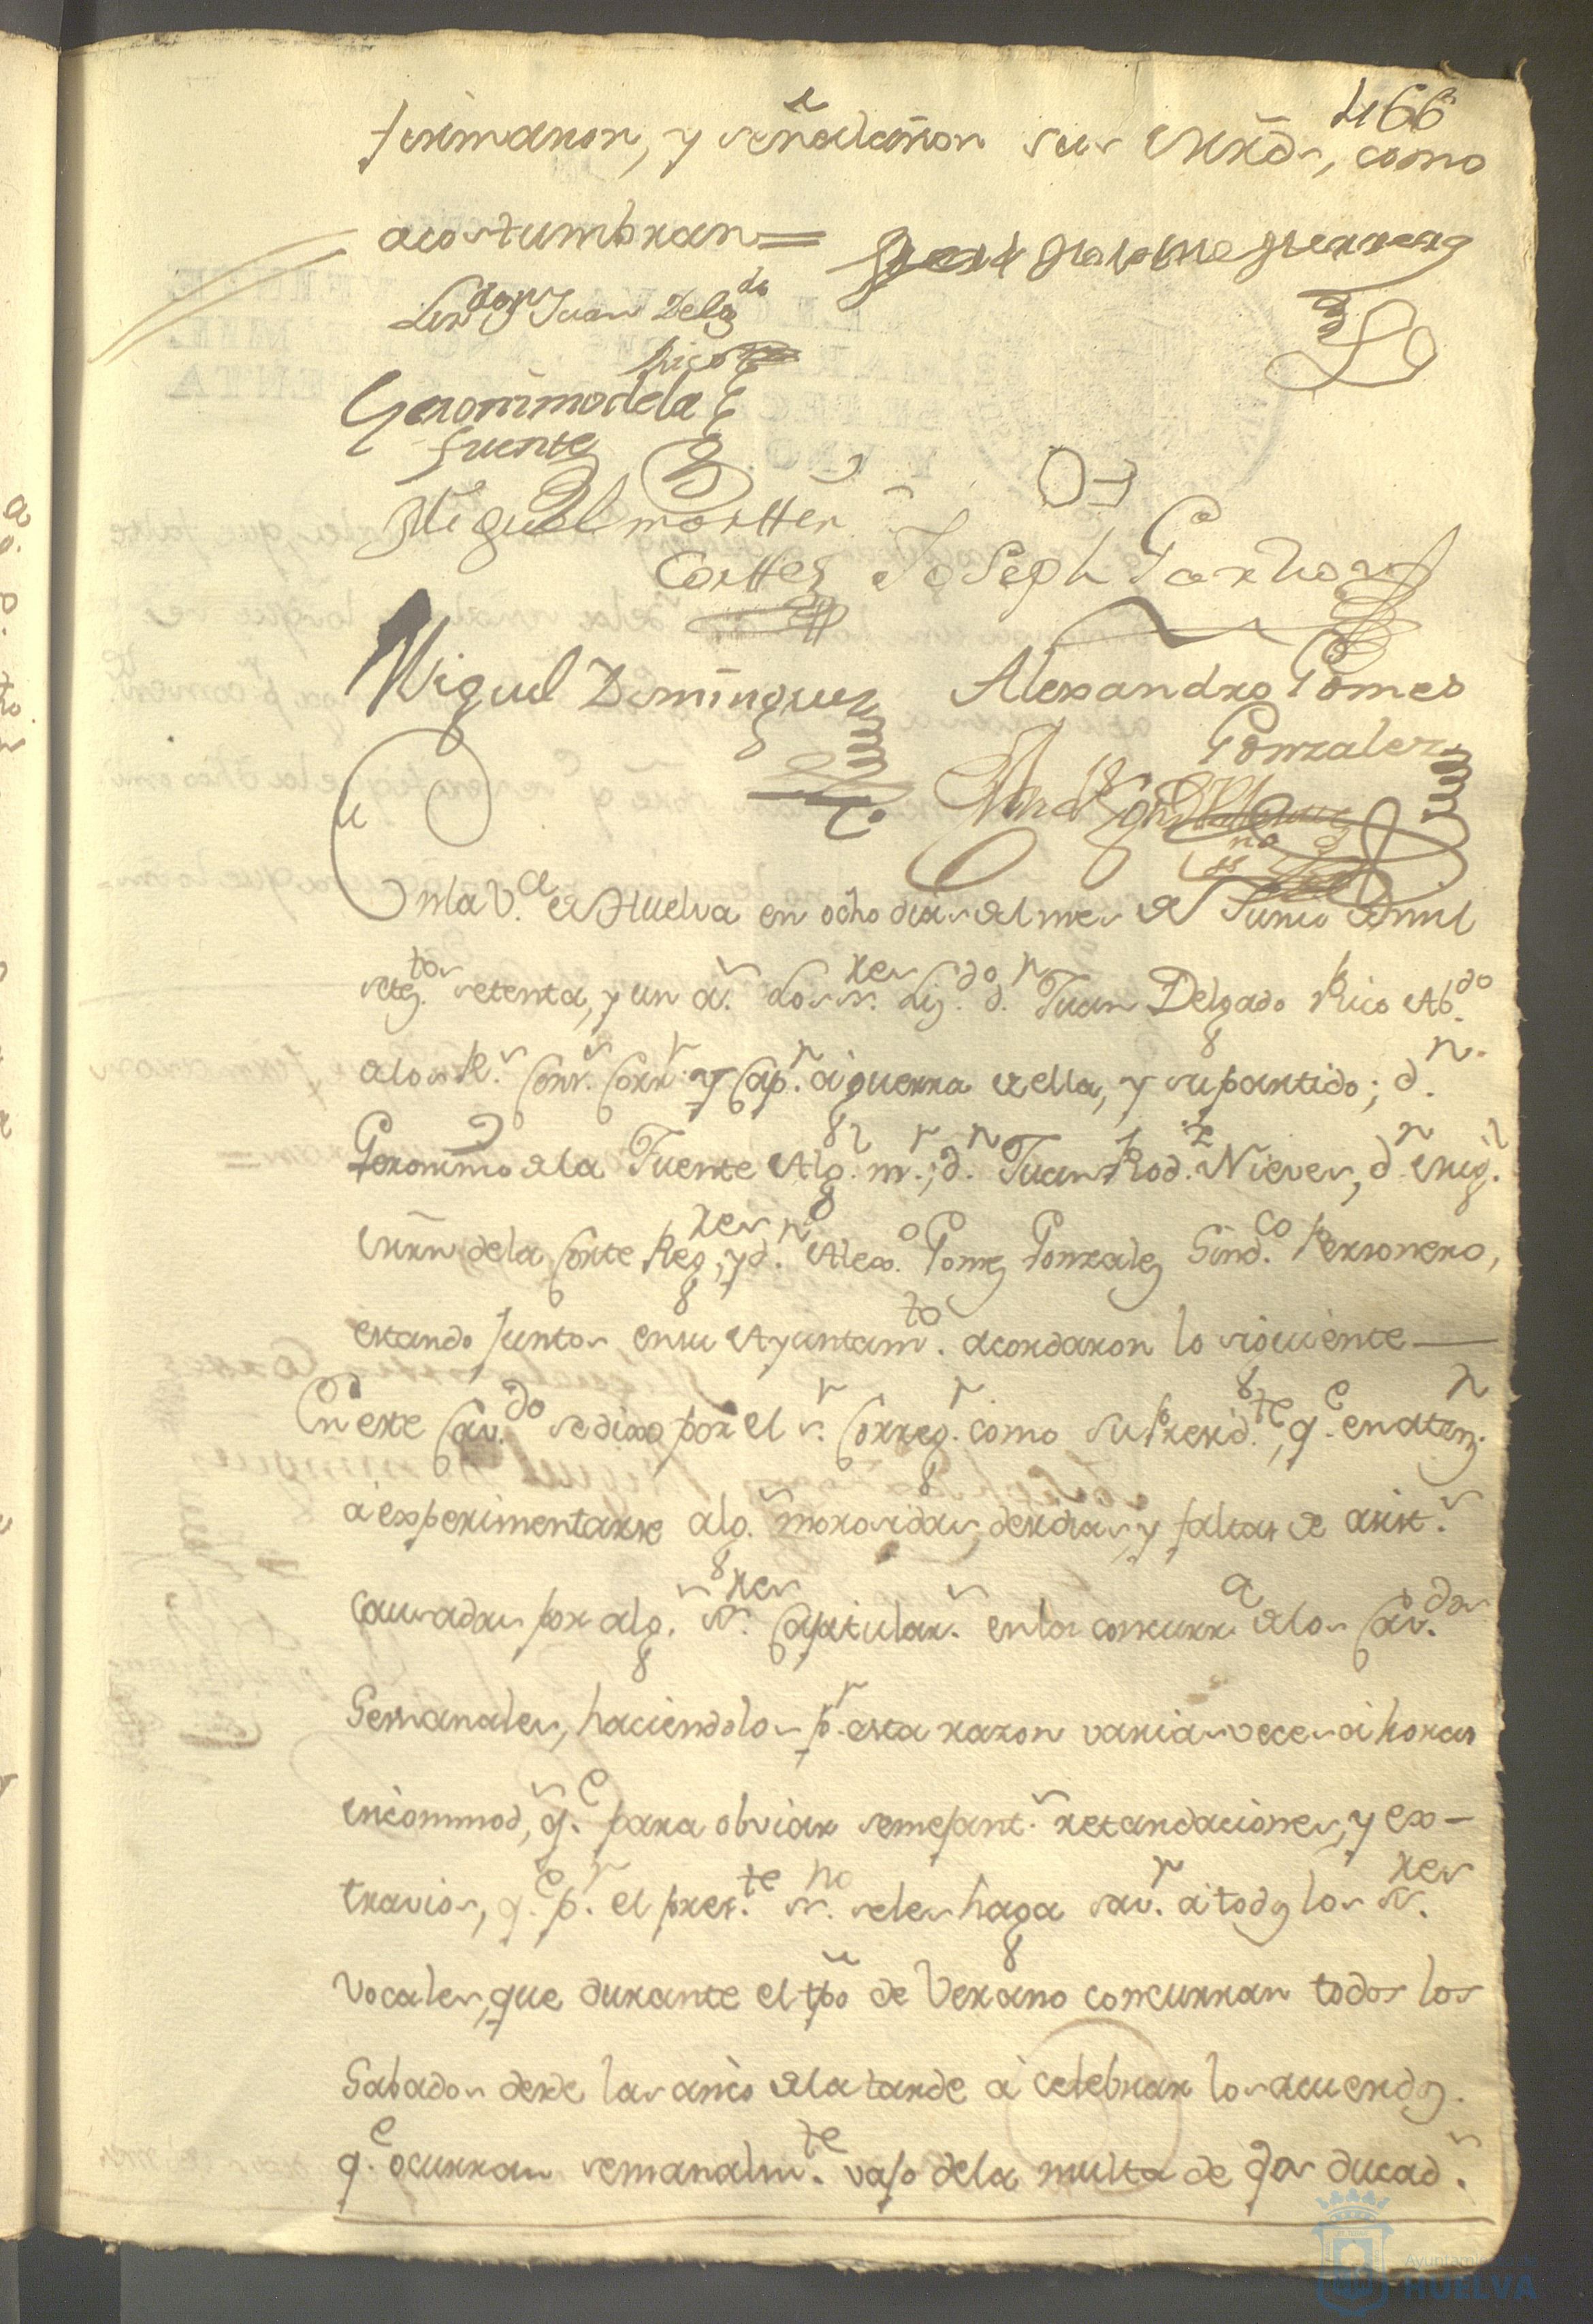 466
firmaron, y señalaron sus mrds, como
acostumbran=
Lizdo Dn Juan Delgdo
Rico
Geronimo dela
Fuente
Miguel martten
Corttes Joseph Garzon
Miguel Dominguez Alexandro Gomes
Gonzalez
En la V.a de Huelva en ocho dias del mes de Junio de mil
seteg.tos setenta, y un a.s Los ss.res Liz.do d.n Juan Delgado Rico Ab.do
a los R.s Cons.s Corr.r y Cap.n a guerra de ella, y su partido; d.n
Geronimo de la Fuente Alg.l m.r; d.n Juan Rod.z Nieves, d.n Mig.l
Mrn dela Corte Reg.res, y d.n Alex.o Gomez Gonzalez Sind.co Personero,
estando Juntos en su Ayuntam.to acordaron lo siguiente—
En este Cav.do se dixo por el s.r Correg.r como su Presid.te, q.e en atenz.n
a experimentarse alg.s morosidas, desidias, y faltas de asist.s
causadas por alg.s ss.res Capitular.s en la concurr.a a los Cav.dos
Semanales, haciendolos p.r esta razon varias veces a horas
incommod.s, q.e para obviar semejant.s retardaciones, y ex-
travios, q.e p.r el pres.te ss.no se les haga sav.r a todos los ss.res
Vocales, que durante el tpõ de Verano concurran todos los
Sabados desde las cinco de la tarde a celebrar los acuerdos
q.e ocurran semanalm.te vajo dela multa de dos ducad.s
Ayuntamiento de
HUELVA